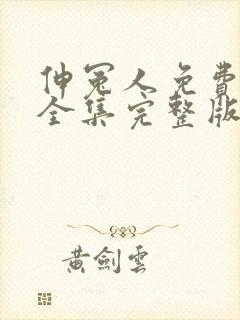 伸冤人免費
全集完整版
黃劍雲